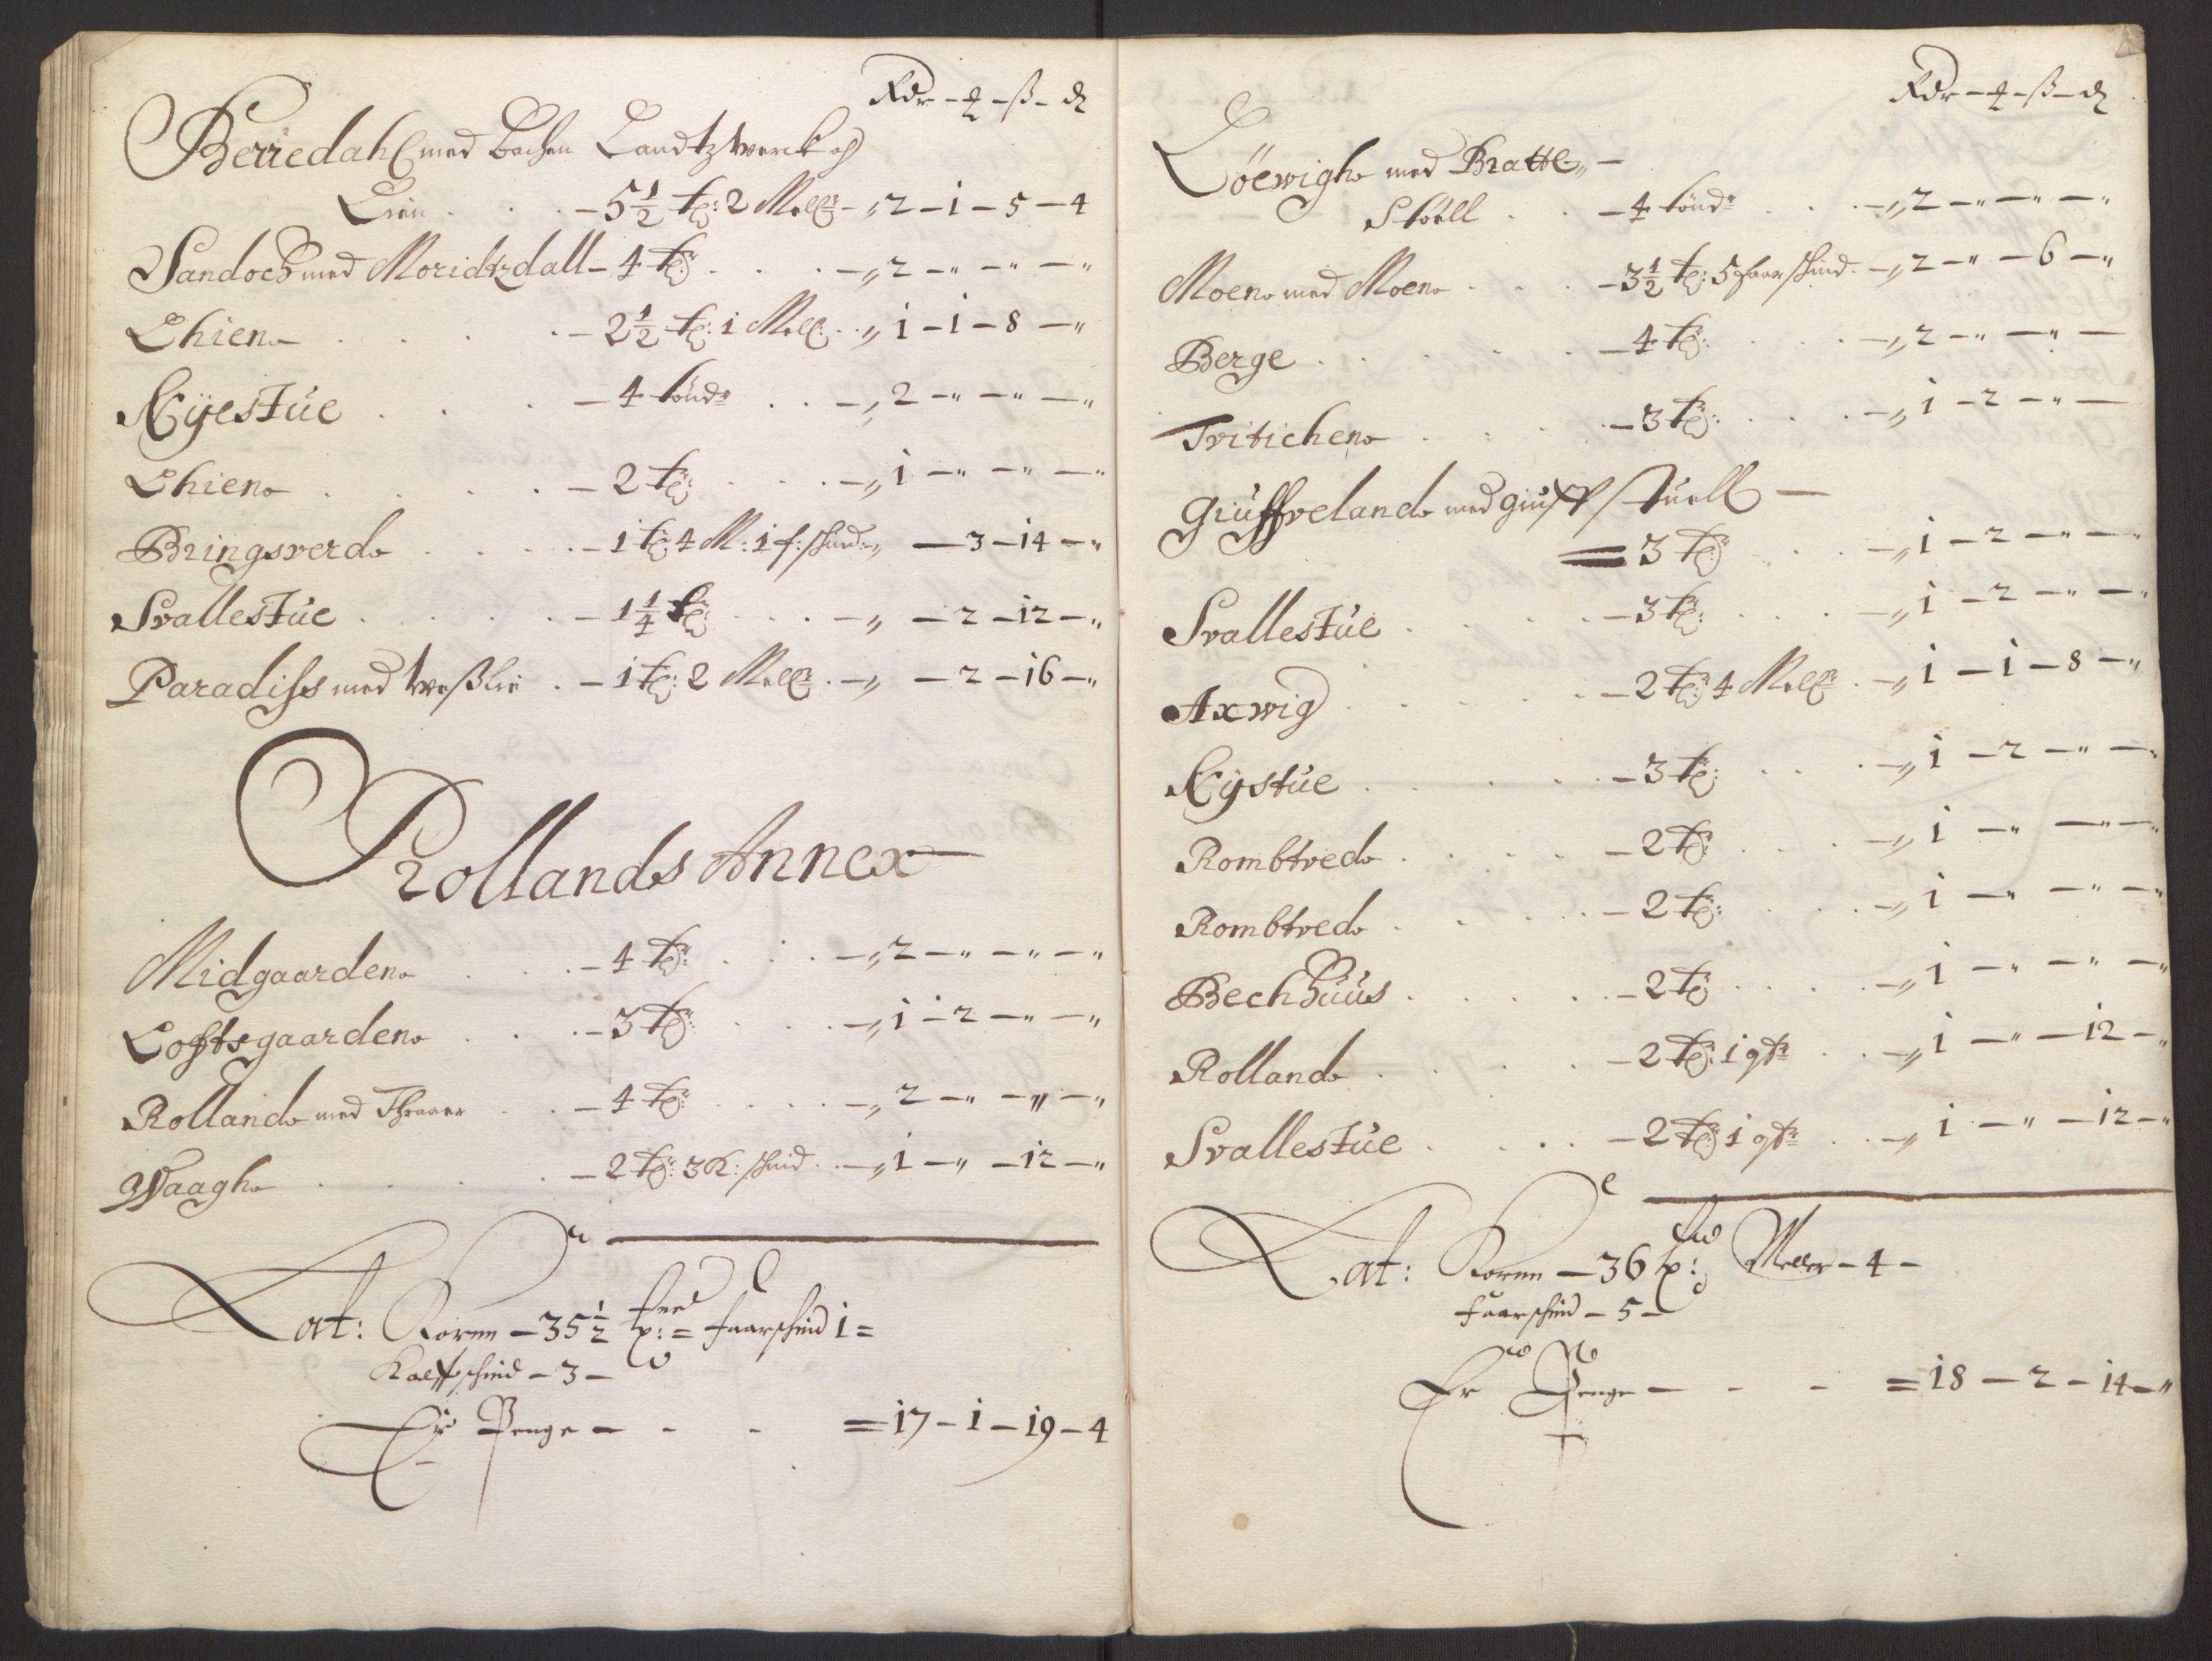 Rdr - ꝶ - ß - ₰
Beriedahl med bachen Landtzwerk och
Lien . . . - 5½ tr: 2 Meller - „ 2 - 1 - 5 - 4
Sandoch med Moridtzdall - 4 tr: . . . - „ 2 - „ - „ - „
Ehien . . . - 2½ tr: 1 Mell: . . „ 1 - 1 - 8 - „
Eyestue . . . - 4 tönder . . - „ 2 - „ - „ - „
Ehien . . . . - 2 tr: . . . - „ 1 - „ - „ - „
Bringsverd . . . . - 1 tr: 4 M: 1 f: schind: „ - 3 - 14 - „
Svallestue . . . . - 1¼ tr: . . . - „ - 2 - 12 - „
Paradiss med weßlie . - 1 tr: 2 Meller . - „ - 2 - 16 - „
Rollands Annex
Midgaarden . . . - 4 tr: . . . - „ 2 - „ - „ - „
Loftsgaarden . . . - 3 tr: . . . - „ 1 - 2 - „ - „
Rolland med Thraaer . . - 4 tr: . . . - „ 2 - „ - „ - „
Waagh . . . . - 2 tr: 3 K: schind . . - „ 1 - „ - 12 - „
Lat: Korn - 35½ tr: = faarschind 1 =
Kalffschind - 3 -
Er Penge - - - = 17 - 1 - 19 - 4
Rdr - ꝶ - ß - ₰
Löewigh med Bratte„ -
Stöell . . - 4 tönder . . - „ 2 - „ - „ - „
Moen med Moen . . . - 3½ tr: 5 faarschind . - „ 2 - „ - 6 - „
Berge . . . . . - 4 tr: . . . - „ 2 - „ - „ -
Tvitichen . . . . - 3 tr: . . . - „ 1 - 2 - „ -
Giuffveland med giuffstuell -
3 tr: . . . - „ 1 - 2 - „ - „
Svallestue . . . . - 3 tr: . . . - „ 1 - 2 - „ - „
Axwig . . . . . - 2 tr: 4 Meller . - „ 1 - 1 - 8 - „
Eystue . . . . . - 3 tr: . . . - „ 1 - 2 - „ - „
Rombtved . . . . - 2 tr: . . . - „ 1 - „ - „ - „
Rombtved . . . . - 2 tr: . . . - „ 1 - „ - „ - „
Bechhuus . . . . - 2 tr: . . . - „ 1 - „ - „ - „
Rolland . . . . - 2 tr: 1 qtr . . - „ 1 - „ - 12 - „
Svallestue . . . . - 2 tr: 1 qtr . . - „ 1 - „ - 12 - „
Lat: Korn - 36 tr: Meller - 4 -
faarschind - 5 -
Er Penge - - - = 18 - 2 - 14 - „